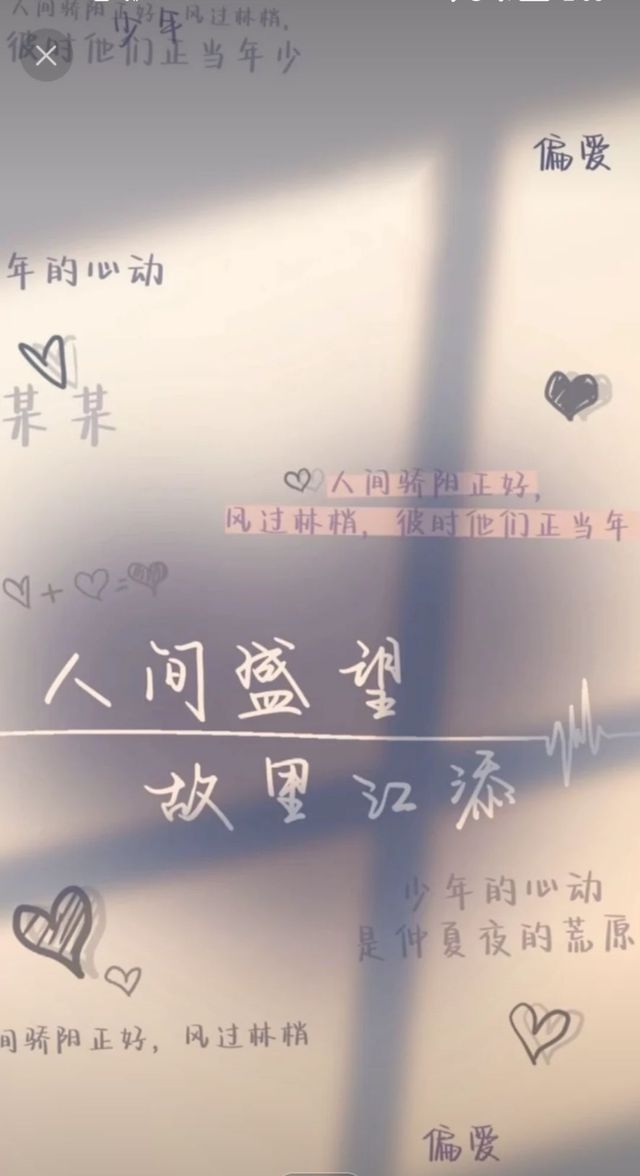 人间骄阳正好，风过林梢，
少年
彼时他们正当年少
偏爱
年的心动
某某
人间骄阳正好，
风过林梢，彼时他们正当年
+ =
人间盛望
故里江添
少年的心动
是仲夏夜的荒原
间骄阳正好，风过林梢
偏爱